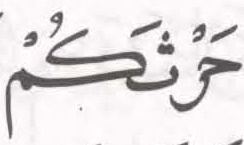 حَرْثَكُمْ